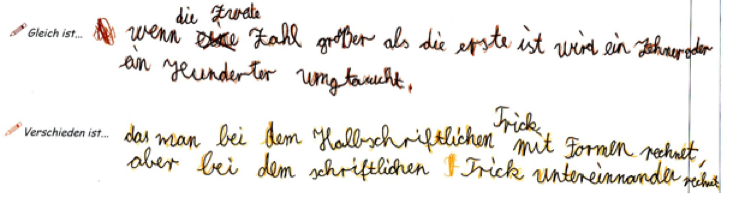 Gleich ist... wenn die zweite Zahl größer als die erste ist wird ein Zehner oder
ein Hunderter umgtauscht.
Verschieden ist... das man bei dem Halbschriftlichen Trick mit Formen rechnet,
aber bei dem schriftlichen Trick untereinnander rechnet